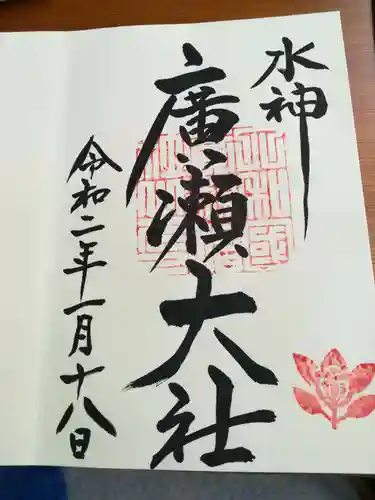 水神
廣瀬大社
令和二年一月十八日